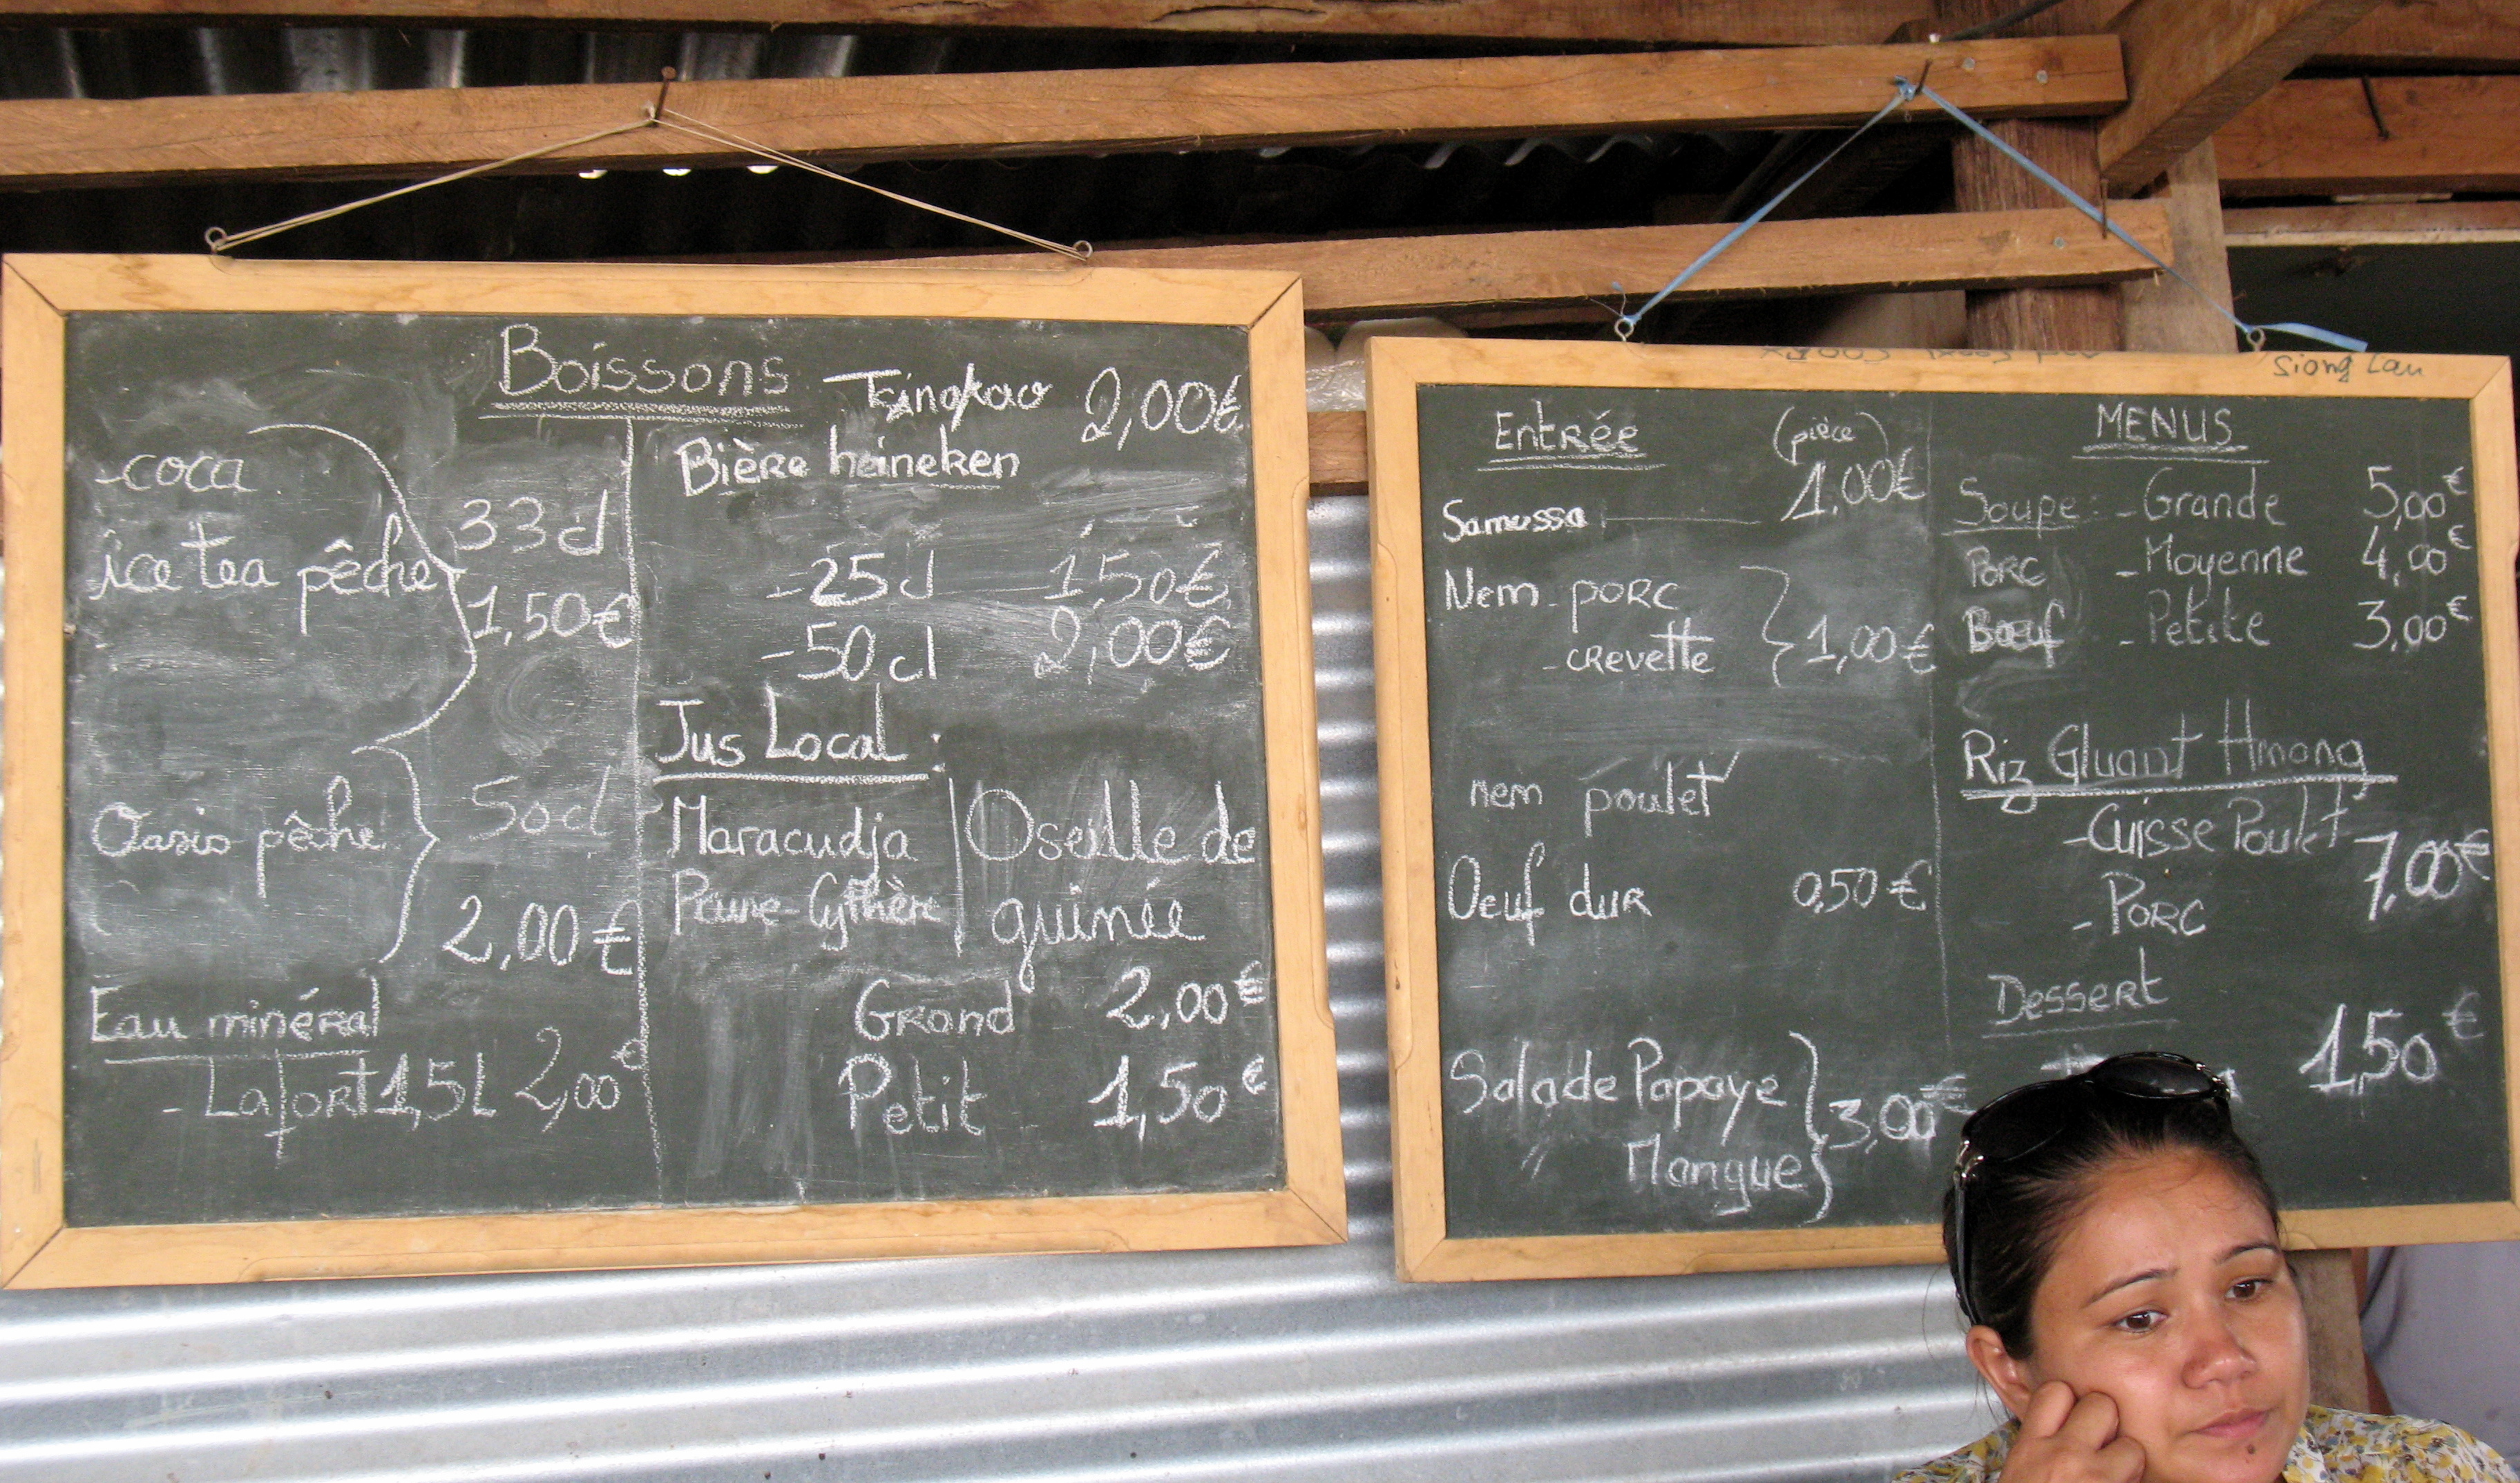 Boissons
Tsingtao 2,00€
-coca
ice tea pêche
33cl
1,50€
Bière heineken
-25cl 1,50€
-50cl 2,00€
Oasis pêche
50cl
2,00€
Jus Local :
Maracudja
Prune-Cythère
Oseille de
guinée
Grand 2,00€
Petit 1,50€
Eau minéral
- Lafort 1,5L 2,00€
Siong Lau
Entrée (pièce)
Samussa 1,00€
Nem - porc
- crevette
1,00€
nem poulet
Oeuf dur 0,50€
Salade Papaye
" Mangue
3,00€
MENUS
Soupe: - Grande 5,00€
Porc - Moyenne 4,00€
Bœuf - Petite 3,00€
Riz Gluant Hmong
-Cuisse Poulet
- Porc
7,00€
Dessert
1,50€